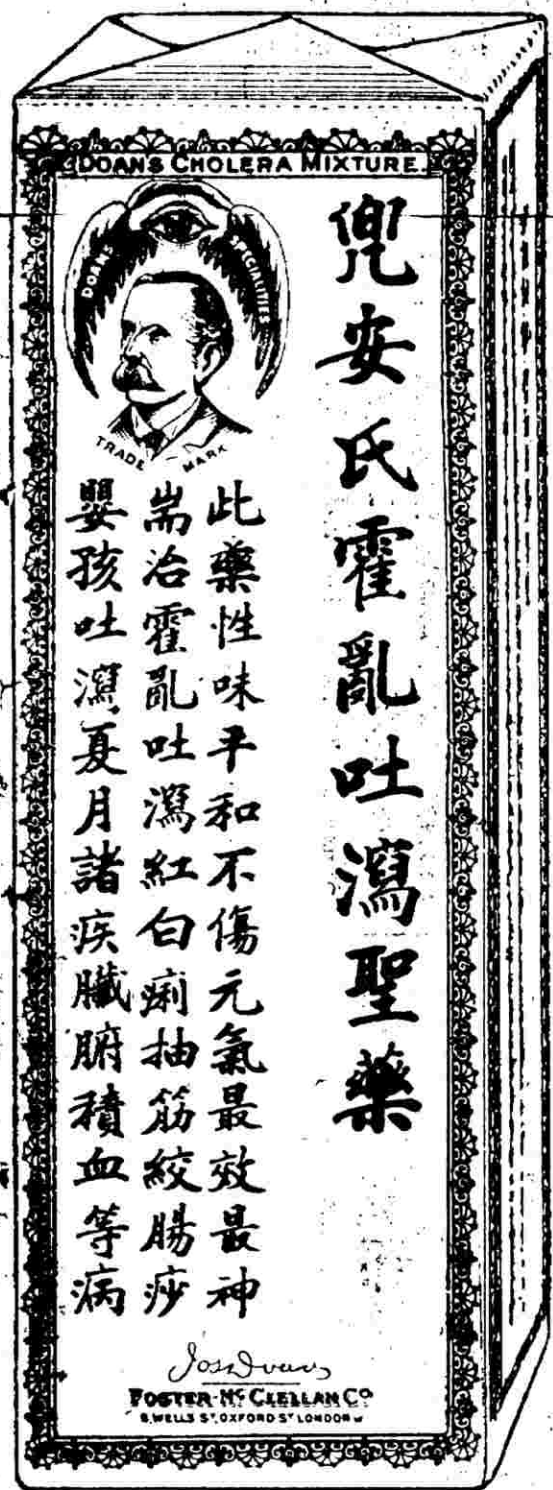 DOAN'S CHOLERA MIXTURE.
DOAN'S SPECIALITIES
TRADE MARK
兜安氏霍亂吐瀉聖藥
此藥性味平和不傷元氣最效最神
耑治霍亂吐瀉紅白痢抽筋絞腸痧
嬰孩吐瀉夏月諸疾臟腑積血等病
FOSTER-McCLELLAN Co
8, WELLS ST, OXFORD ST LONDON W